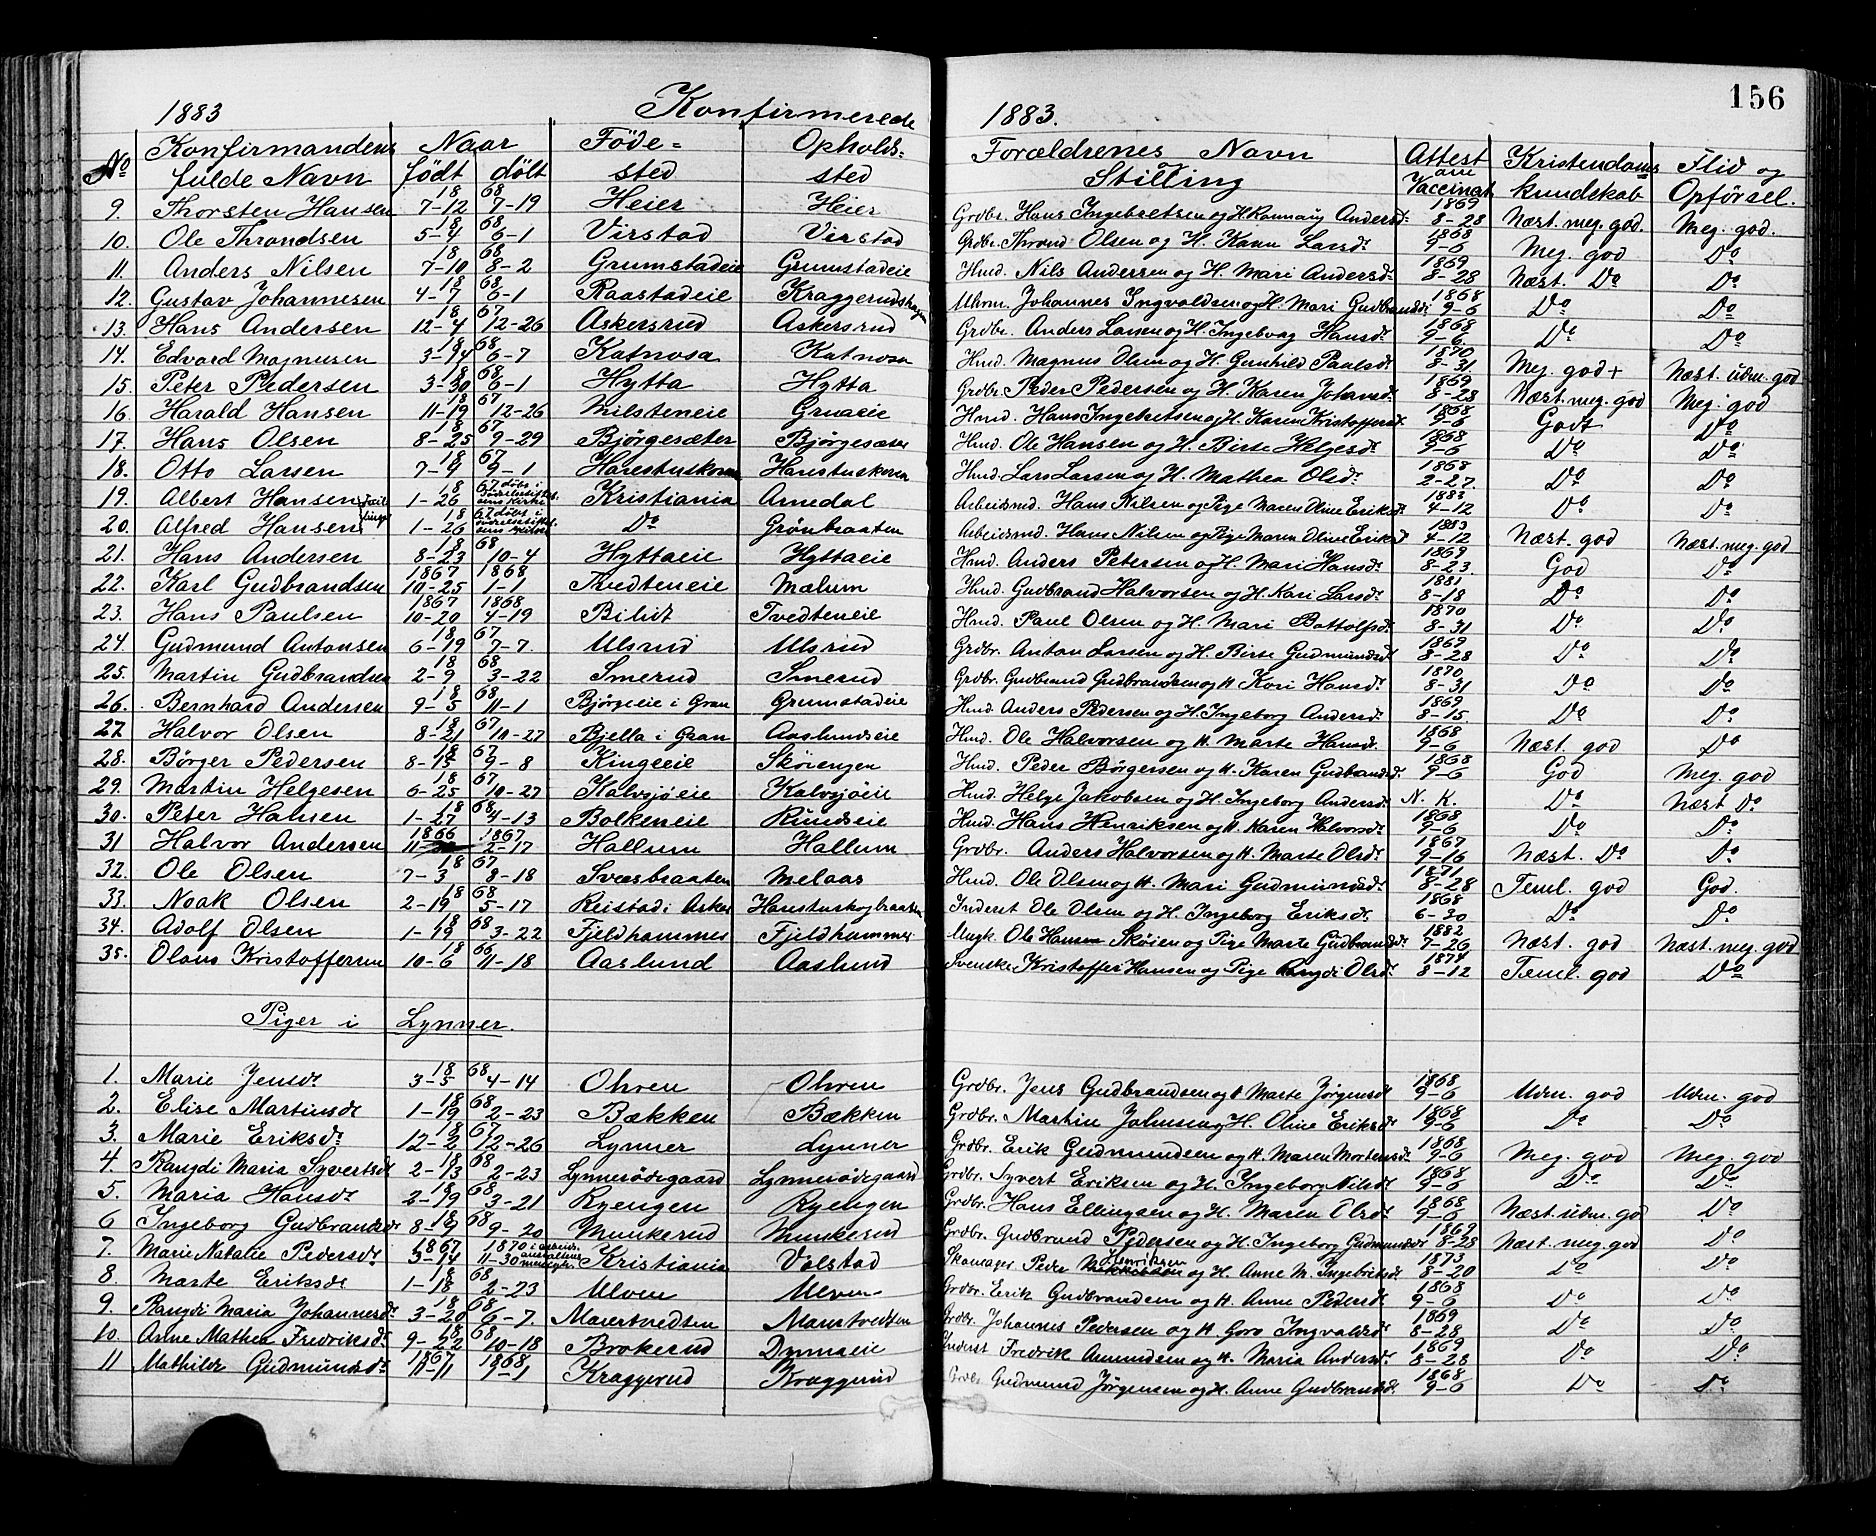 156
1883 Konfirmerede 1883.
No Konfirmandens Naar Föde= Opholds= Forældrenes Navn Attest Kristendoms Flid og
fulde Navn födt döbt sted sted og Stilling om Vaccinat. kundskab Opförsel.
9. Thorsten Hansen 7-12 18 68 7-19 Heier Heier Grdbr. Hans Ingebretsen og H. Rannaug Andersd. 1869 8-28 Næst. meg. god. Meg. god.
10. Ole Throndsen 5-4 18 68 6-1 Virstad Virstad Grdbr. Thrond Olsen og H. Kari Larsd. 1868 9-6 Meg. god Do
11. Anders Nilsen 7-10 18 68 8-2 Grumstadeie Grumstadeie Hmd. Nils Andersen og H. Mari Andersd. 1869 8-28 Næst. Do Do
12. Gustav Johannesen 4-7 18 68 6-1 Raastadeie Kraggerudshagen Uhrm. Johannes Ingvaldsen og H. Mari Gudbrandsd. 1868 9-6 Do Do
13. Hans Andersen 12-4 18 67 12-26 Askersrud Askersrud Grdbr. Anders Larsen og H. Ingeborg Hansd. 1868 9-6 Do Do
14. Edvard Magnusen 3-14 18 68 6-7 Katnosa Katnosa Hmd. Magnus Olsen og H. Gunhild Paulsd. 1870 8-31 Meg. god+ Næst. udm. god
15. Peter Pedersen 3-30 18 68 6-1 Hytta Hytta Grdbr. Peder Pedersen og H. Karen Johansd. 1869 8-28 Næst. meg. god Meg. god
16. Harald Hansen 11-19 18 67 12-26 Milsteneie Gruaeie Hmd. Hans Ingebretsen og H. Karen Kristoffersd. 1868 9-6 Godt Do
17. Hans Olsen 8-25 18 67 9-29 Bjørgesæter Bjørgesæter Hmd. Ole Hansen og H. Birte Helgesd. 1868 9-6 Do Do
18. Otto Larsen 7-9 18 67 9-1 Harestuskoven Harestuskoven Hmd. Lars Larsen og H. Mathea Olsd. 1868 2-27 Do Do
19. Albert Hansen 1-26 18 67 döbt i Kristiania Amedal Arbeidsmd. Hans Nilsen og Pige Maren Oline Eriksd. 1883 4-12 Do Do
20. Alfred Hansen 1-26 18 67 döbt i Do Grönbraaten Arbeidsmd. Hans Nilsen og Pige Maren Oline Eriksd. 1883 4-12 Næst. god Næst. meg. god
21. Hans Andersen 8-23 18 68 10-4 Hyttaeie Hyttaeie Hmd. Anders Petersen og H. Mari Hansd. 1869 8-23. God Do
22. Karl Gudbrandsen 1867 10-25 1868 1-1 Tvedteneie Mælum Hmd. Gudbrand Halvorsen og H. Kari Larsd. 1881 8-18 Do Do
23. Hans Paulsen 1867 10-20 1868 4-19 Bilidt Tvedteneie Hmd. Paul Olsen og H. Mari Bottolfsd. 1870 8-31 Do Do
24. Gudmund Antonsen 6-19 18 67 7-7. Ulsrud Ulsrud Grdbr. Anton Larsen og H. Birte Gudmundsd. 1869 8-28 Do Do
25. Martin Gudbrandsen 2-9 18 68 3-22 Smerud Smerud Grdbr. Gudbrand Gudbrandsen og H. Kari Hansd. 1870 8-31 Do Do
26. Bernhard Andersen 9-5 18 68 11-1 Bjørgeeie i Gran Grumstadeie Hmd. Anders Pedersen og H. Ingeborg Andersd. 1869 8-15. Do Do
27. Halvor Olsen 8-21 18 67 10-27 Bjella i Gran Aaslundseie Hmd. Ole Halvorsen og H. Marte Hansd. 1868 9-6 Næst. god Do
28. Børger Pedersen 8-15 18 67 9-8 Kingeeie Skøiengen Hmd. Peder Børgersen og H. Karen Gudbrandsd. 1868 9-6 God Meg. god
29. Martin Helgesen 6-25 18 67 10-27 Kalvsjøeie Kalvsjøeie Hmd. Helge Jakobsen og H. Ingeborg Andersd. N. K. Do Næst Do
30. Peter Hansen 1-27 18 68 4-13 Bolkeneie Rundseie Hmd. Hans Henriksen og H. Karen Halvorsd. 1868 9-6 Do Do
31 Halvor Andersen 1866 1867 2-17 Hallum Hallum Grdbr. Anders Halvorsen og H. Marte Olsd. 1867 9-16 Næst. Do Do
32. Ole Olsen 7-3 18 67 8-18 Svensbraaten Melaas Hmd. Ole Olsen og H. Mari Gudmundsd. 1871 8-28 Teml. god God.
33. Noak Olsen 2-19 18 68 5-17 Reistad i Asker Harestuskogbraaten Inderst Ole Olsen og H. Ingeborg Eriksd. 1868 6-30 Do Do
34. Adolf Olsen 1-19 18 68 3-22 Fjeldhammer Fjeldhammer Ungk. Ole Hansen Skøien og Pige Marte Gudbrandsd. 1882 7-26 Næst. god Næst. meg. god
35. Olaus Kristoffersen 10-6 18 66 11-18 Aaslund Aaslund Svenske Kristoffer Hansen og Pige Rangdi Olsd. 1874 8-12 Teml. god Do
Piger i Lynner.
1. Marie Jensd. 3-5 18 68 4-14 Ohren Ohren Grdbr. Jens Gudbrandsen og H. Marte Jørgensd. 1868 9-6 Udm. god Udm. god
2. Elise Martinsd. 1-19 18 68 2-23 Bækken Bækken Grdbr. Martin Johnsen og H. Oline Eriksd. 1868 9-6 Do Do
3. Marie Eriksd. 12-2 18 67 12-26 Lynner Lynner Grdbr. Erik Gudmundsen og H. Maren Mortensd. 1868 9-6 Meg. god Meg. god
4. Rangdi Maria Syvertsd. 2-13 18 68 2-23 Lynnerødegaard Lynnerødegaard Grdbr. Syvert Eriksen og H. Ingeborg Nilsd. 1868 9-6 Do Do
5. Maria Hansd. 2-19 18 68 3-21 Ryengen Ryengen Grdbr. Hans Ellingsen og H. Maren Olsd. 1868 9-6 Næst. udm. god Do
6 Ingeborg Gudbrandsd. 8-9 18 68 9-20 Munkerud Munkerud Grdbr. Gudbrand Pedersen og H. Ingeborg Gudmundsd. 1869 8-28 Næst. meg. god Do
7. Marie Natalie Pedersd. 1867 3-14 1870 11-30 Kristiania Volstad Skomager Peder Henriksen og H. Anne M. Ingebretsd. 1873 8-20 Do Do
8. Marte Eriksd. 1-18 18 68 2-23 Ulven Ulven Grdbr. Erik Gudbrandsen og H. Anne Pedersd. 1868 9-6 Do Do
9. Rangdi Maria Johannesd. 3-20 18 68 6-7. Maurtvedten Maurtvedten Grdbr. Johannes Pedersen og H. Goro Ingvaldsd. 1869 8-28 Do Do
10. Anne Mathea Fredriksd. 9-22 18 68 10-18 Brokerud Dynnaeie Inderst Fredrik Amundsen og H. Maria Andersd. 1869 8-28 Do Do
11 Mathilde Gudmundsd. 1867 11-11 1868 1-1 Kraggerud Kraggerud Grdbr. Gudmund Jørgensen og H. Anne Gudbrandsd. 1868 9-6 Do Do